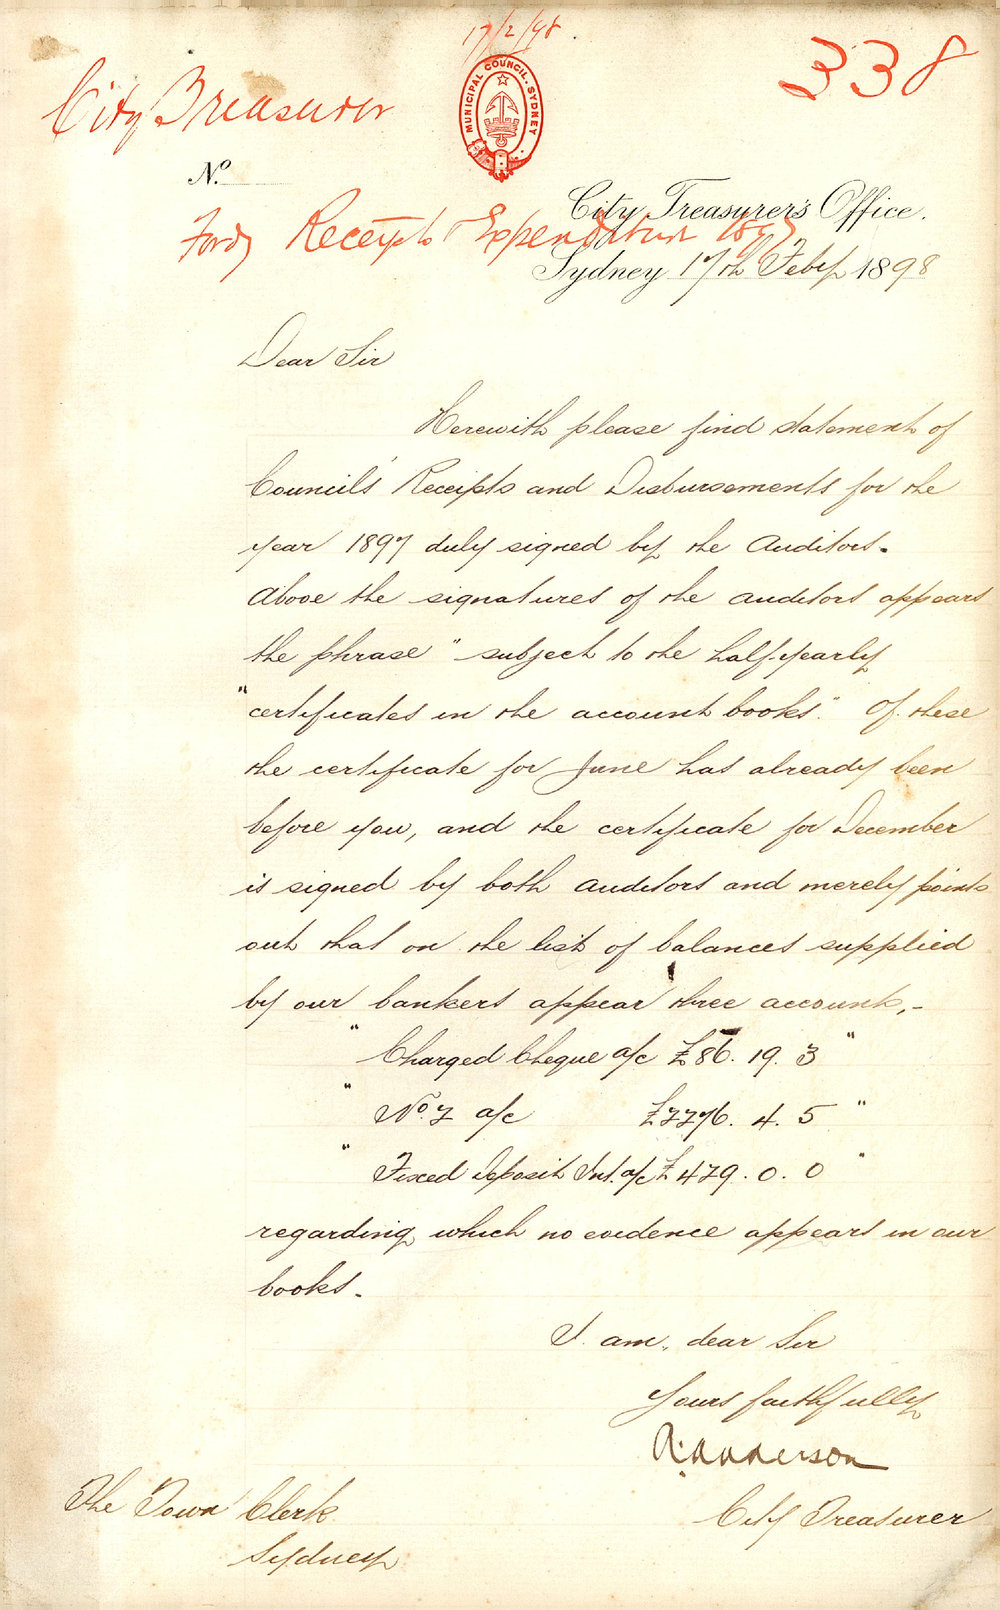 17/2/98.
338
City Treasurer
MUNICIPAL COUNCIL. SYDNEY
No.
City Treasurer's Office.
Fordg Receipts & Expenditure 1897
Sydney 17th Feby 1898
Dear Sir
Herewith please find statement of
Council's Receipts and Disbursements for the
year 1897 duly signed by the Auditors.
Above the signatures of the auditors appears
the phrase "subject to the half-yearly
"certificates in the account books." Of these
the certificate for June has already been
before you, and the certificate for December
is signed by both auditors and merely points
out that on the list of balances supplied
by our bankers appear three accounts,-
" Charged Cheque a/c £86. 19. 3 "
" No. 7 a/c £7776. 4. 5 "
" Fixed Deposit Int. a/c £479. 0. 0 "
regarding which no evidence appears in our
books.
I am, dear Sir
Yours faithfully
Anderson
City Treasurer
The Town Clerk
Sydney